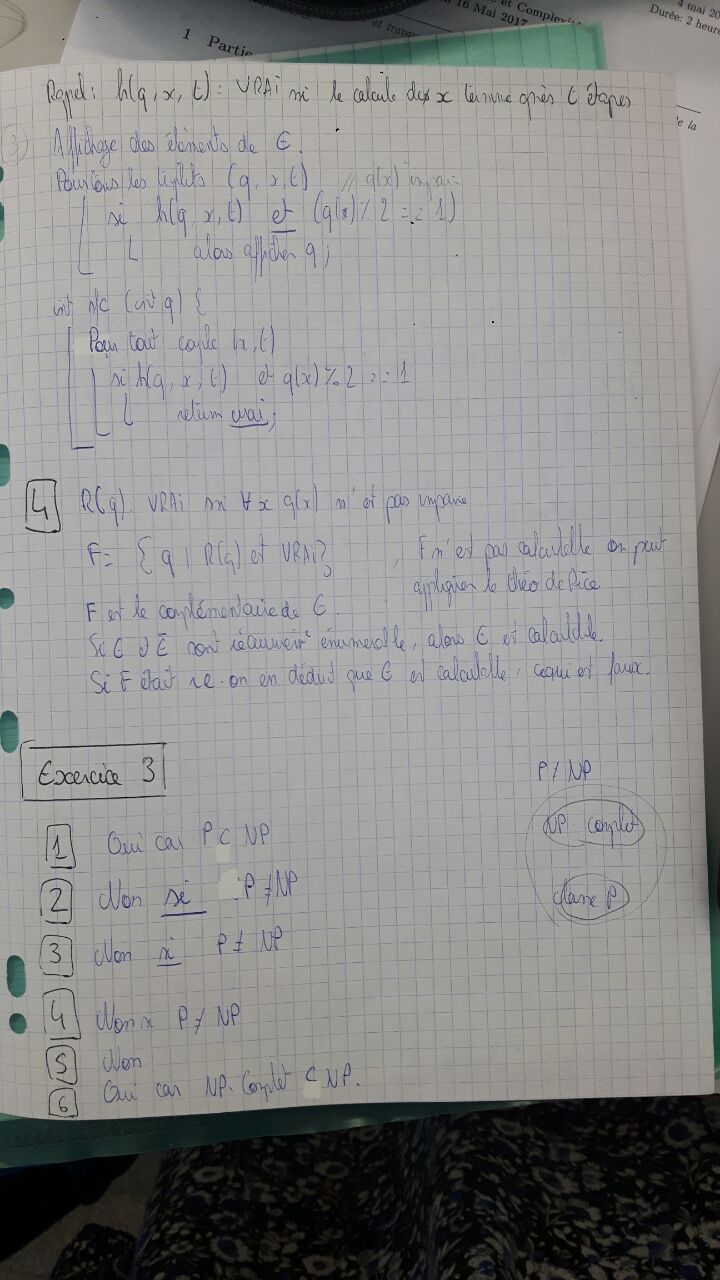 16 Mai 2017
et Complexité
4 mai 20
Durée: 2 heure
et travau
1 Partie
de la
Rappel: h(q, x, t): VRAi ssi le calcule de q x termine après t étapes
3
Affichage des éléments de E.
Pour tous les triplets (q, x, t) // q(x) impair
si h(q, x, t) et (q(x) % 2 == 1)
alors afficher q;
int (int q) {
Pour tout couple (x, t)
si h(q, x, t) et q(x) % 2 == 1
return vrai;
4 R(q) VRAi ssi ∀ x q(x) n'est pas impaire
F = { q | R(q) est VRAi}, F n'est pas calculable on peut
appliquer le théo de Rice
F est le complémentaire de E.
Si E et Ē sont récursivem^t énumerable, alors E est calculable.
Si F était re. on en déduit que E est calculable, ce qui est faux.
Exercice 3
P ≠ NP
NP-complet
classe P
1 Oui car P ⊂ NP
2 Non si P ≠ NP
3 Non si P ≠ NP
4 Non si P ≠ NP
5 Non
6 Oui car NP-Complet ⊂ NP.